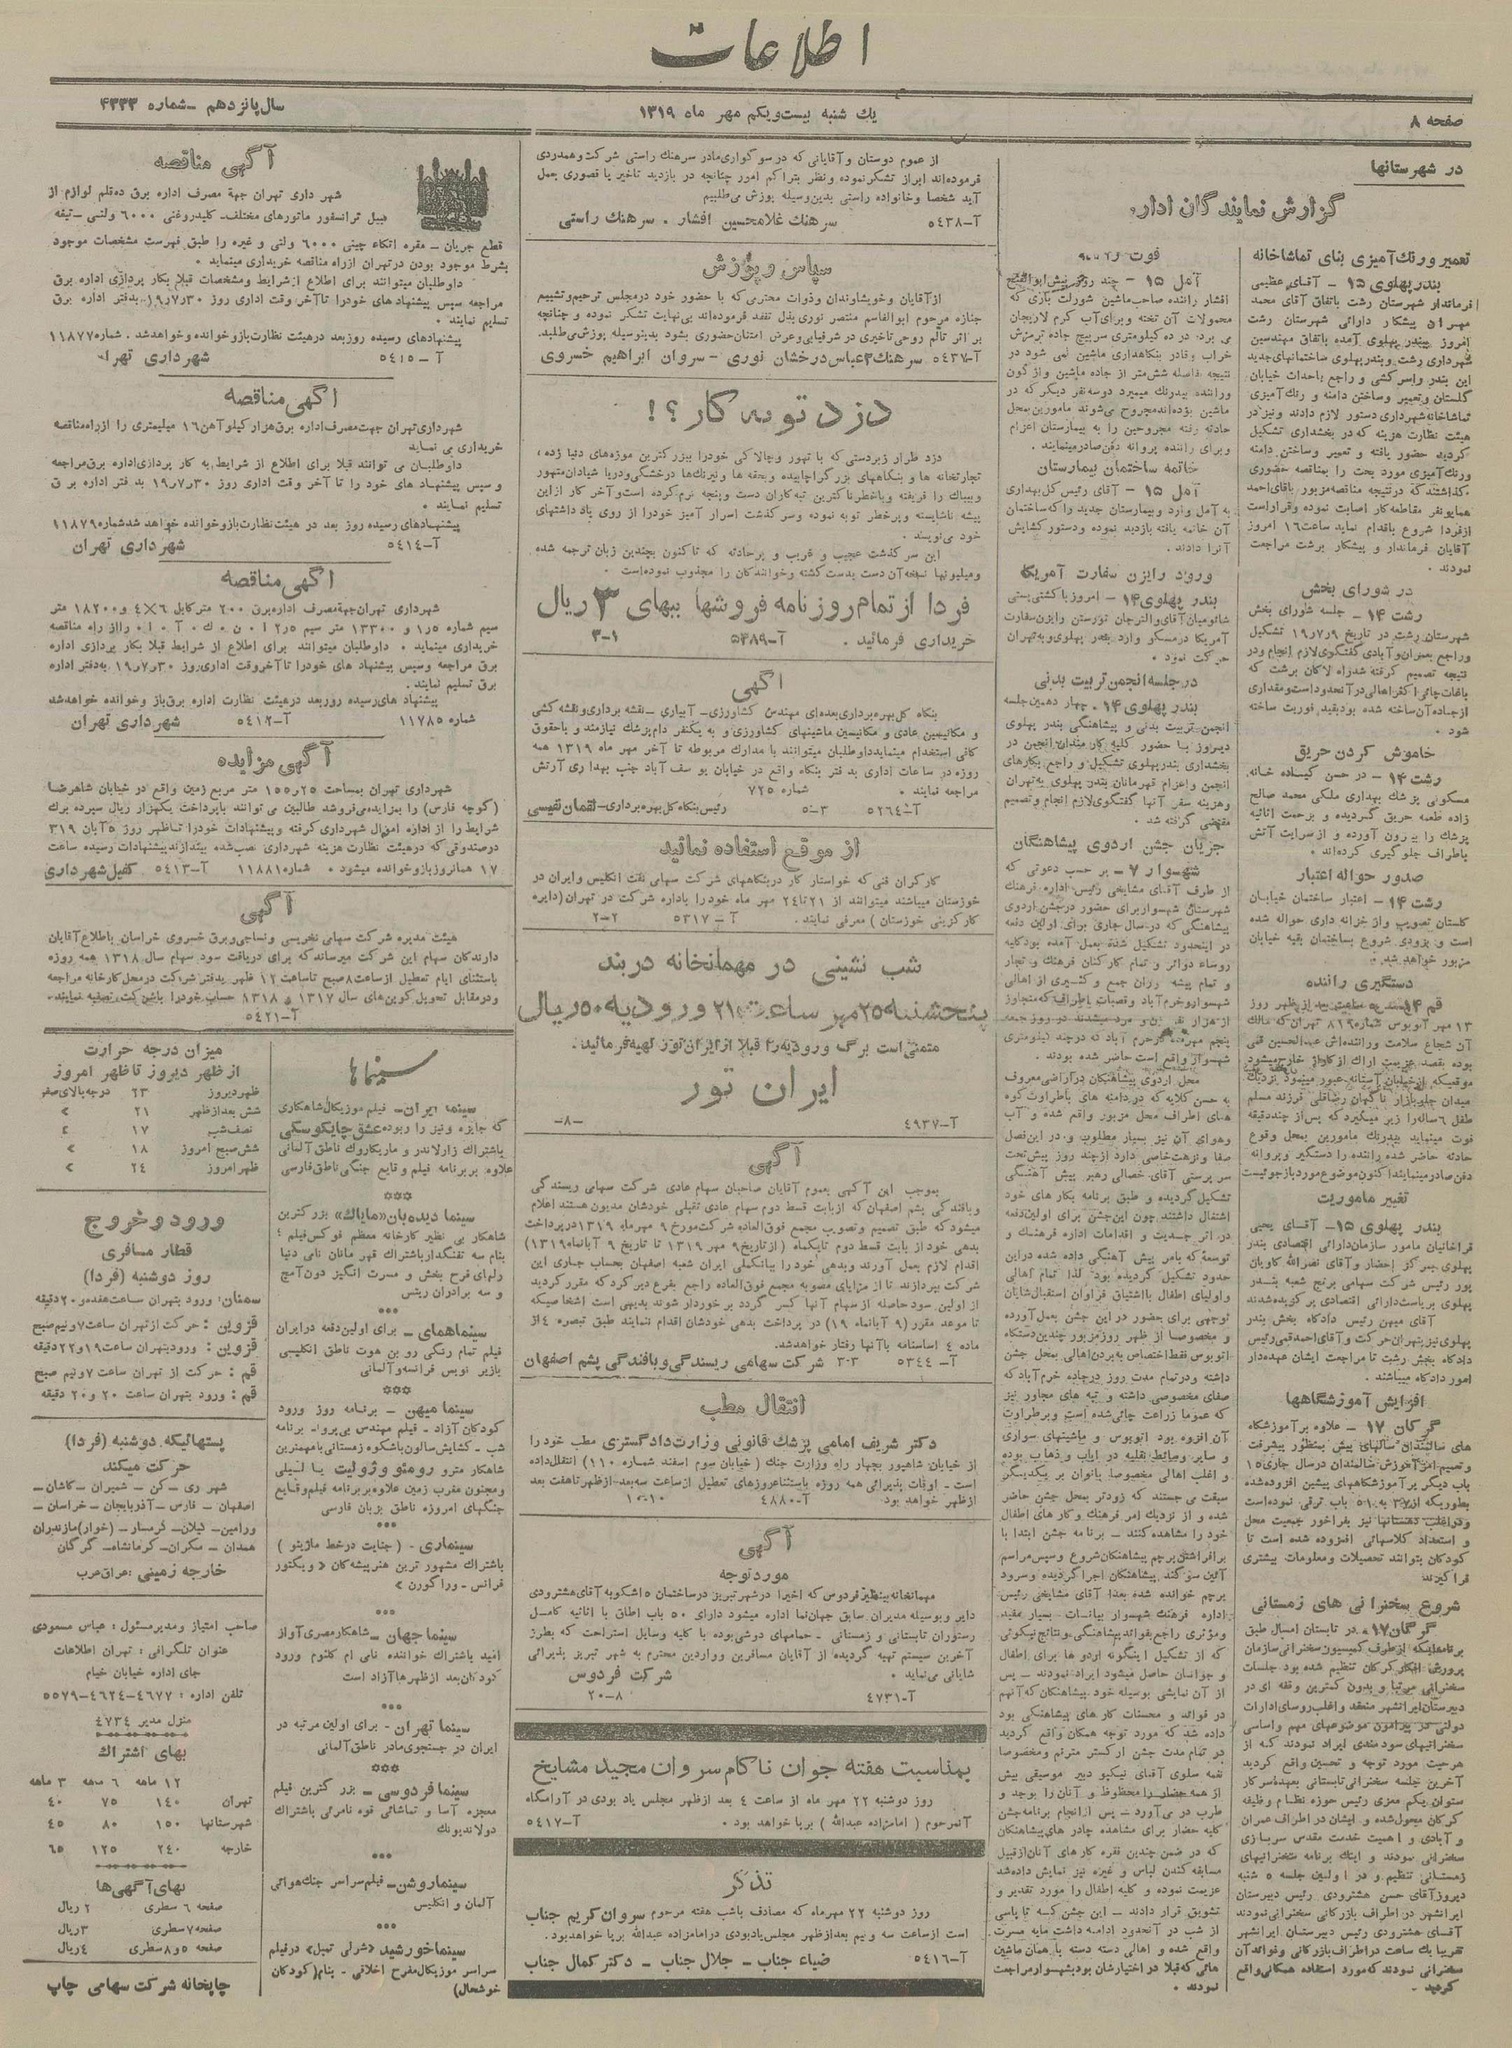 اطلاعات
صفحه ۸
یك شنبه بیست ویكم مهر ماه ۱۳۱۹
سال پانزدهم -شماره ۴۳۳۳
در شهرستانها
گزارش نمایندگان اداره
تعمیر ورنك آمیزی بنای تماشاخانه
بندر پهلوی ۱۵ - آقای عظیمی
فرماندار شهرستان رشت باتفاق آقای محمد
مهران پیشكار دارائی شهرستان رشت
امروز ببندر پهلوی آمده باتفاق مهندسین
شهرداری رشت وبندر پهلوی ساختمانهای جدید
این بندر راسر كشی و راجع باحداث خیابان
گلستان وتعمیر وساختن دامنه و رنك آمیزی
تماشاخانه شهرداری دستور لازم دادند ونیز در
هیئت نظارت هزینه كه در بخشداری تشكیل
گردید حضور یافته و تعمیر وساختن دامنه
ورنك آمیزی مورد بحث را بمناقصه حضوری
گذاشتند كه درنتیجه مناقصه مزبور باقای احمد
همایونفر مقاطعه كار اصابت نموده وقراراست
ازفردا شروع باقدام نماید ساعت ۱۶ امروز
آقایان فرماندار و پیشكار برشت مراجعت
نمودند .
در شورای بخش
رشت ۱۴ - جلسه شورای بخش
شهرستان رشت در تاریخ ۱۹ر۷ر۹ تشكیل
وراجع بعمران وآبادی گفتگوی لازم انجام ودر
نتیجه تصمیم گرفته شدراه لاكان برشت كه
باغات چائی اكثر اهالی درآنحدوداست ومقداری
ازجاده آن ساخته شده بودبقید فوریت ساخته
شود .
خاموش كردن حریق
رشت ۱۴ - در حسن كیاده خانه
مسكونی پزشك بهداری ملكی محمد صالح
زاده طعمه حریق گردیده و بزحمت اثاثیه
پزشك را بیرون آورده و از سرایت آتش
باطراف جلوگیری كرده‌اند .
صدور حواله اعتبار
رشت ۱۴ - اعتبار ساختمان خیابان
گلستان تصویب واز خزانه داری حواله شده
است و بزودی شروع بساختمان بقیه خیابان
مزبور خواهد شد .
دستگیری راننده
میدان جلو بازار ناگهان رضاقلی فرزند مسلم
طفل ۶ ساله را زیر میگیرد كه پس از چند دقیقه
فوت مینماید بیدرنك مامورین بمحل وقوع
حادثه حاضر شده راننده را دستگیر وپروانه
دفن صادر مینمایند اكنون موضوع مورد بازجوئیست
تغییر ماموریت
بندر پهلوی ۱۵ - آقای یحیی
قراخانیان مامور سازمان دارائی اقتصادی بندر
پهلوی بمركز احضار و آقای نصرالله كاویان
پور رئیس شركت سهامی برنج شعبه بندر
پهلوی بریاست دارائی اقتصادی برگزیده شدند
آقای میهن رئیس دادگاه بخش بندر
پهلوی نیز بتهران حركت و آقای احمد قمی رئیس
دادگاه بخش رشت تا مراجعت ایشان عهده دار
امور دادگاه میباشند .
افزایش آموزشگاهها
گرگان ۱۷ - علاوه بر آموزشگاه
های سالمندان سالهای پیش بمنظور پیشرفت
وتعمیم امر آموزش سالمندان درسال جاری ۱۵
باب دیگر بر آموزشگاههای پیشین افزوده شده
بطوریكه از ۳۷ به ۵۱ باب ترقی نموده است
ودر اغلب دهستانها نیز بفراخور جمعیت محل
و استعداد كلاسهائی افزوده شده است تا
كودكان بتوانند تحصیلات ومعلومات بیشتری
فراگیرند
شروع سخنرانی های زمستانی
گرگان ۱۷ - در تابستان امسال طبق
برنامه‌ایكه از طرف كمیسیون سخنرانی سازمان
پرورش افكار گرگان تنظیم شده بود جلسات
سخنرانی مرتبا و بدون كمترین وقفه ای در
دبیرستان ایرانشهر منعقد واغلب روسای ادارات
دولتی در پیرامون موضوعهای مهم واساسی
سخنرانیهای سودمندی ایراد نمودند كه از
هرحیث مورد توجه و تحسین واقع گردید
آخرین جلسه سخنرانی تابستانی بعهده سركار
ستوان یكم معزی رئیس حوزه نظام وظیفه
گرگان محول شده و ایشان در اطراف عمران
و آبادی و اهمیت خدمت مقدس سربازی
سخنرانی نمودند و اینك برنامه سخنرانیهای
زمستانی تنظیم و در اولین جلسه ۵ شنبه
دیروز آقای حسن هشترودی رئیس دبیرستان
ایرانشهر در اطراف بازرگانی سخنرانی نمودند
آقای هشترودی رئیس دبیرستان ایرانشهر
تقریبا یك ساعت دراطراف بازرگانی وفوائد آن
سخنرانی نمودند كه مورد استفاده همگانی واقع
گردید .
آمل ۱۵ - چند روز پیش ابوالفتح
افشار راننده صاحب ماشین شورلت باری كه
محمولات آن تخته وبرای آب كرم لاریجان
می برد، در ده كیلومتری سرپیچ جاده ترمزش
خراب وقادر بنگاهداری ماشین نمی شود در
نتیجه فاصله شش متر از جاده ماشین واژگون
وراننده بیدرنك میمیرد دوسه نفر دیگر كه در
ماشین بوده‌اند مجروح می‌شوند مامورین بمحل
حادثه رفته مجروحین را به بیمارستان اعزام
وبرای راننده پروانه دفن صادر مینمایند .
خاتمه ساختمان بیمارستان
آمل ۱۵ - آقای رئیس كل بهداری
به آمل وارد وبیمارستان جدید را كه ساختمان
آن خاتمه یافته بازدید نموده ودستور گشایش
آنرا دادند .
ورود رایزن سفارت آمریكا
بندر پهلوی ۱۴ - امروز باكشتی پستی
شائومیان آقای والترجان تورستن رایزن سفارت
آمریكا درمسكو وارد بندر پهلوی وبه تهران
حركت نمود .
در جلسه انجمن تربیت بدنی
بندر پهلوی ۱۴ - چهار دهمین جلسه
انجمن تربیت بدنی و پیشاهنگی بندر پهلوی
دیروز با حضور كلیه كارمندان انجمن در
بخشداری بندر پهلوی تشكیل و راجع بكارهای
انجمن واعزام قهرمانان بندر پهلوی به تهران
وهزینه سفر آنها گفتگوی لازم انجام وتصمیم
مقتضی گرفته شد .
جریان جشن اردوی پیشاهنگان
شهسوار ۷ - بر حسب دعوتی كه
از طرف آقای مشایخی رئیس اداره فرهنك
شهرستان شهسوار برای حضور درجشن اردوی
پیشاهنگی كه در سال جاری برای اولین دفعه
در اینحدود تشكیل شده بعمل آمده بود كلیه
روساء دوائر و تمام كاركنان فرهنك و تجار
و تمام پیشه وران جمع و كثیری از اهالی
شهسوار وخرم آباد وقصبات باطراف كه متجاوز
شهسوار واقع است حاضر شده بودند .
محل اردوی پیشاهنگان درآراضی معروف
به حسن كلایه كه در دامنه های باطراوت كوه
های اطراف محل مزبور واقع شده و آب
وهوای آن نیز بسیار مطلوب و در این فصل
صفا ونزهت خاصی دارد از چند روز پیش تحت
سرپرستی آقای خصالی رهبر پیش آهنگی
تشكیل گردیده و طبق برنامه بكار های خود
اشتغال داشتند چون این جشن برای اولین دفعه
در اثر جدیت و اقدامات اداره فرهنك و
توسعه كه بامر پیش آهنگی داده شده دراین
حدود تشكیل گردیده بود لذا تمام اهالی
واولیای اطفال با اشتیاق فراوان استقبال شایان
توجهی برای حضور در این جشن بعمل آورده
و مخصوصا از ظهر روز مزبور چندین دستگاه
اتوبوس فقط اختصاص به بردن اهالی بمحل جشن
داشته ودر تمام مدت روز درجاده خرم آباد كه
صفای مخصوصی داشته و تپه های مجاور نیز
كه عموما زراعت چائی شده است وبر طراوت
آن افزوده بود اتوبوس و ماشینهای سواری
و سایر وسائط نقلیه در ایاب و ذهاب بوده
و اغلب اهالی مخصوصا بانوان بر یكدیگر
سبقت می جستند كه زودتر بمحل جشن حاضر
شده و از نزدیك امر فرهنك و كار های اطفال
خود را مشاهده كنند - برنامه جشن ابتدا با
برافراشتن پرچم پیشاهنگان شروع و سپس مراسم
آئین سوگند پیشاهنگان اجرا گردیده و سرود
پرچم خوانده شده بعدا آقای مشایخی رئیس
اداره فرهنك شهسوار بیانات بسیار مفید
ومؤثری راجع بفوائد پیشاهنگی ونتایج نیكوئی
كه از تشكیل اینگونه اردو ها برای اطفال
و جوانان حاصل میشود ایراد نمودند - پس
از آن نمایشی بوسیله خود پیشاهنگان كه آنهم
در فوائد و محسنات كار های پیشاهنگی بود
داده شد كه مورد توجه همگان واقع گردید
در تمام مدت جشن اركستر مترنم ومخصوصا
نغمه سلوی آقای نیكپو دبیر موسیقی بیش
از همه حضار را محظوظ و آنان را بوجد و
طرب در می‌آورد - پس از انجام برنامه جشن
كلیه حضار برای مشاهده چادر های پیشاهنگان
كه در ضمن چندین فقره كار های آنان از قبیل
مسابقه كندن لباس و غیره نیز نمایش داده شد
عزیمت نموده و كلیه اطفال را مورد تقدیر و
تشویق قرار دادند - این جشن كه تا پاسی
از شب در آنحدود ادامه داشت مایه مسرت
واقع شده و اهالی دسته دسته با همان ماشین
هائی كه قبلا در اختیارشان بود بشهسوار مراجعت
نمودند .
از عموم دوستان و آقایانی كه در سوگواری مادر سرهنك راستی شركت و همدردی
فرموده‌اند ابراز تشكر نموده ونظر بتراكم امور چنانچه در بازدید تاخیر یا قصوری بعمل
آید شخصا وخانواده راستی بدین وسیله پوزش می طلبیم
آ-۵۴۳۸ سرهنك غلامحسین افشار . سرهنك راستی
سپاس و پوزش
از آقایان وخویشاوندان وذوات محترمی كه با حضور خود درمجلس ترحیم و تشییع
جنازه مرحوم ابوالقاسم منتصر نوری بذل تفقد فرموده‌اند بی‌نهایت تشكر نموده و چنانچه
بر اثر تألم روحی تاخیری در شرفیابی وعرض امتنان حضوری بشود بدینوسیله پوزش می‌طلبد.
آ-۵۴۳۷ سرهنك ۲ عباس درخشان نوری - سروان ابراهیم خسروی
دزد توبه كار؟!
دزد طرار زبردستی كه با تهور وچالاكی خودرا ببزرگترین موزه‌های دنیا زده،
تجارتخانه ها و بنگاههای بزرگ را چاپیده وبحقه ها و نیرنگها درخشگی ودریا شیادان متهور
وبیباك را فریفته وباخطرناكترین تبه كاران دست وپنجه نرم كرده است و آخر كار از این
پیشه ناشایسته و پر خطر توبه نموده وسرگذشت اسرار آمیز خودرا از روی یادداشتهای
خود می‌نویسد .
این سرگذشت عجیب و غریب و پرحادثه كه تاكنون بچندین زبان ترجمه شده
ومیلیونها نسخه آن دست بدست گشته وخوانندگان را مجذوب نموده است
فردا از تمام روزنامه فروشها ببهای ۳ ریال
خریداری فرمائید . آ-۵۳۸۹ ۳-۱
آگهی
بنگاه كل بهره برداری بعده‌ای مهندس كشاورزی- آبیاری - نقشه برداری و نقشه كشی
و مكانیسین عادی و مكانیسین ماشینهای كشاورزی و به یكنفر دام پزشك نیازمند و باحقوق
كافی استخدام مینماید داوطلبان میتوانند با مدارك مربوطه تا آخر مهر ماه ۱۳۱۹ همه
روزه در ساعات اداری بدفتر بنگاه واقع در خیابان یوسف آباد جنب بهداری آرتش
مراجعه نمایند . شماره ۷۲۵
آ-۵۲۶۴ ۳-۵ رئیس بنگاه كل بهره برداری- لقمان نفیسی
از موقع استفاده نمائید
كارگران فنی كه خواستار كار دربنگاههای شركت سهامی نفت انگلیس وایران در
خوزستان میباشند میتوانند از ۲۱ تا ۲۴ مهر ماه خودرا باداره شركت در تهران (دایره
كارگزینی خوزستان ) معرفی نمایند . آ - ۵۳۱۷ ۲-۲
شب نشینی در مهمانخانه دربند
پنجشنبه ۲۵ مهر ساعت ۲۱ ورودیه ۵۰ ریال
متمنی است برگ ورودیه را قبلا از ایران تور تهیه فرمائید.
ایران تور
آ-۴۹۳۷ -۸-
آگهی
بموجب این آگهی بعموم آقایان صاحبان سهام عادی شركت سهامی ریسندگی
وبافندگی پشم اصفهان كه ازبابت قسط دوم سهام عادی تقبلی خودشان مدیون هستند اعلام
میشود كه طبق تصمیم و تصویب مجمع فوق‌العاده شركت مورخ ۹ مهر ماه ۱۳۱۹ درپرداخت
بدهی خود از بابت قسط دوم تایكماه (از تاریخ ۹ مهر ۱۳۱۹ تا تاریخ ۹ آبانماه ۱۳۱۹)
اقدام لازم بعمل آورند وبدهی خود را ببانك ملی ایران شعبه اصفهان بحساب جاری این
شركت بپردازند تا از مزایای مصوبه مجمع فوق‌العاده راجع بفرع دیركرد كه مقرر گردید
از اولین سود حاصله از سهام آنها كسر گردد برخوردار شوند بدیهی است اشخاصیكه
تا موعد مقرر (۹ آبانماه ۱۹) در پرداخت بدهی خودشان اقدام ننمایند طبق تبصره ۴ از
ماده ۴ اساسنامه باآنها رفتار خواهدشد.
آ- ۵۳۴۴ ۳-۳ شركت سهامی ریسندگی وبافندگی پشم اصفهان
انتقال مطب
دكتر شریف امامی پزشك قانونی وزارت دادگستری مطب خود را
از خیابان شاهپور بچهار راه وزارت جنك (خیابان سوم اسفند شماره ۱۱۰) انتقال داده
است - اوقات پذیرائی همه روزه باستثناء روزهای تعطیل ازساعت سه بعد ازظهر تا هفت بعد
ازظهر خواهد بود آ-۴۸۸۰ ۱۰-۱۰
آگهی
مورد توجه
مهمانخانه بینظیر فردوس كه اخیرا در شهر تبریز درساختمان ۵ اشكوبه آقای هشترودی
دایر وبوسیله مدیران سابق جهان‌نما اداره میشود دارای ۵۰ باب اطاق با اثاثیه كامل
رستوران تابستانی و زمستانی . حمامهای دوشی بوده با كلیه وسایل استراحت كه بطرز
آخرین سیستم تهیه گردیده از آقایان مسافرین وواردین محترم به شهر تبریز پذیرائی
شایانی می‌نماید . شركت فردوس
آ-۴۷۳۱ ۲۰-۸
بمناسبت هفته جوان ناكام سروان مجید مشایخ
روز دوشنبه ۲۲ مهر ماه از ساعت ۴ بعد ازظهر مجلس یاد بودی در آرامگاه
آنمرحوم ( امامزاده عبدالله ) برپا خواهد بود . آ-۵۴۱۷
تذكر
روز دوشنبه ۲۲ مهرماه كه مصادف باشب هفته مرحوم سروان كریم جناب
است ازساعت سه و نیم بعدازظهر مجلس یادبودی درامامزاده عبدالله برپا خواهدبود.
آ-۵۴۱۶ ضیاء جناب - جلال جناب - دكتر كمال جناب
آگهی مناقصه
شهرداری تهران جهة مصرف اداره برق ده قلم لوازم از
قبیل ترانسفور ماتورهای مختلف- كلید روغنی ۶۰۰۰ ولتی -تیغه
قطع جریان - مقره اتكاء چینی ۶۰۰۰ ولتی و غیره را طبق فهرست مشخصات موجود
بشرط موجود بودن در تهران ازراه مناقصه خریداری مینماید .
داوطلبان میتوانند برای اطلاع از شرایط ومشخصات قبلا بكار پردازی اداره برق
مراجعه سپس پیشنهاد های خودرا تا آخر وقت اداری روز ۱۹ر۷ر۳۰ بدفتر اداره برق
تسلیم نمایند .
پیشنهادهای رسیده روز بعد در هیئت نظارت باز و خوانده وخواهدشد . شماره ۱۱۸۷۷
آ - ۵۴۱۵ شهرداری تهران
آگهی مناقصه
شهرداری تهران جهت مصرف اداره برق هزار كیلو آهن ۱۶ میلیمتری را ازراه مناقصه
خریداری می نماید
داوطلبان می توانند قبلا برای اطلاع از شرایط به كار پردازی اداره برق مراجعه
و سپس پیشنهاد های خود را تا آخر وقت اداری روز ۱۹ر۷ر۳۰ بدفتر اداره برق
تسلیم نمایند .
پیشنهادهای رسیده روز بعد در هیئت نظارت باز و خوانده خواهد شد شماره ۱۱۸۷۹
آ-۵۴۱۴ شهرداری تهران
آگهی مناقصه
شهرداری تهران جهة مصرف اداره برق ۲۰۰ متر كابل ۶×۴ و ۱۸۲۰۰ متر
خریداری مینماید . داوطلبان میتوانند برای اطلاع از شرایط قبلا بكار پردازی اداره
برق مراجعه وسپس پیشنهاد های خودرا تا آخر وقت اداری روز ۱۹ر۷ر۳۰ به دفتر اداره
برق تسلیم نمایند.
پیشنهاد های رسیده روز بعد در هیئت نظارت اداره برق باز و خوانده خواهد شد
شماره ۱۱۷۸۵ آ-۵۴۱۲ شهرداری تهران
آگهی مزایده
شهرداری تهران بمساحت ۲۵ر۱۵۵ متر مربع زمین واقع در خیابان شاهرضا
(كوچه فارس) را بمزایده می‌فروشد طالبین می توانند با پرداخت یكهزار ریال سپرده برگ
شرایط را از اداره اموال شهرداری گرفته وپیشنهادات خودرا تا ظهر روز ۵ آبان ۳۱۹
درصندوقی كه درهیئت نظارت هزینه شهرداری نصب شده بیندازند پیشنهادات رسیده ساعت
۱۷ همانروز باز وخوانده میشود . شماره ۱۱۸۸۱ آ-۵۴۱۳ كفیل شهرداری
آگهی
هیئت مدیره شركت سهامی نخریسی و نساجی و برق خسروی خراسان باطلاع آقایان
دارندگان سهام این شركت میرساند كه برای دریافت سود سهام سال ۱۳۱۸ همه روزه
باستثنای ایام تعطیل از ساعت ۸ صبح تاساعت ۱۲ ظهر بدفتر شركت در محل كارخانه مراجعه
ودر مقابل تحویل كوپن های سال ۱۳۱۷ و ۱۳۱۸ حساب خودرا با شركت تصفیه نمایند.
آ-۵۴۲۱
سینماها
سینما ایران- فیلم موزیكال شاهكاری
كه جایزه ونیز را ربوده عشق چایكوسكی
باشتراك زارلاندر و ماریكاروك ناطق آلمانی
علاوه بر برنامه فیلم وقایع جنگی ناطق فارسی
***
سینما دیده بان «مایاك» بزرگترین
شاهكار بی نظیر كارخانه معظم فوكس فیلم :
بنام سه تفنگدار باشتراك قهرمانان نامی دنیا
رلهای فرح بخش و مسرت انگیز دون آمچ
و سه برادران ریتس
***
سینماهمای - برای اولین دفعه درایران
فیلم تمام رنگی روبن هوت ناطق انگلیسی
بازیر نویس فرانسه و آلمانی
***
سینما میهن - برنامه روز ورود
كودكان آزاد - فیلم مهندس بی پروا- برنامه
شب - گشایش سالون باشكوه زمستانی با مهمترین
شاهكار مترو رومئو و ژولیت یا لیلی
ومجنون مغرب زمین علاوه بر برنامه فیلم وقایع
جنگهای امروزه ناطق بزبان فارسی
***
سینماری - ( جنایت درخط ماژینو )
باشتراك مشهور ترین هنرپیشه گان « ویكتور
فرانس - ورا كورن »
***
سینما جهان - شاهكار مصری آواز
امید باشتراك خواننده نامی ام كلثوم ورود
كودكان بعد از ظهرها آزاد است
***
سینما تهران - برای اولین مرتبه در
ایران در جستجوی مادر ناطق آلمانی
***
سینما فردوسی - بزرگترین فیلم
معجزه آسا و تماشائی قوه نامرئی باشتراك
***
سینما روشن - فیلم سراسر جنك هوائی
آلمان و انگلیس
***
سینما خورشید «شرلی تمپل» درفیلم
سراسر موزیكال مفرح اخلاقی - بنام (كودكان
خوشحال)
میزان درجه حرارت
از ظهر دیروز تا ظهر امروز
ظهر دیروز ۲۳ درجه بالای صفر
شش بعداز ظهر ۲۱ »
نصف شب ۱۷ »
شش صبح امروز ۱۸ »
ظهر امروز ۲۴ »
ورود و خروج
قطار مسافری
روز دوشنبه (فردا)
سمنان: ورود بتهران ساعت هفده و ۲۰ دقیقه
قزوین : حركت از تهران ساعت ۷ ونیم صبح
قزوین : ورود بتهران ساعت ۱۹ و ۲۲ دقیقه
قم : حركت از تهران ساعت ۷ ونیم صبح
قم : ورود بتهران ساعت ۲۰ و ۲۰ دقیقه
پستهائیكه دوشنبه (فردا)
حركت میكند
شهر ری - كن - شمیران - كاشان -
اصفهان - فارس - آذربایجان - خراسان -
ورامین - گیلان - گرمسار - (خوار) مازندران
همدان - مكران - كرمانشاه - گرگان
خارجه زمینی :عراق عرب
صاحب امتیاز ومدیر مسئول: عباس مسعودی
عنوان تلگرافی : تهران اطلاعات
جای اداره خیابان خیام
تلفن اداره : ۴۶۷۷-۴۶۲۴-۵۵۷۹
منزل مدیر ۴۷۳۴
بهای اشتراك
۱۲ ماهه ۶ مهه ۳ ماهه
تهران ۱۴۰ ۷۵ ۴۰
شهرستانها ۱۵۰ ۸۰ ۴۵
خارجه ۲۴۰ ۱۲۵ ۶۵
بهای آگهی ها
صفحه ۶ سطری ۲ ریال
صفحه ۷ سطری ۳ ریال
صفحه ۵ و ۸ سطری ۴ ریال
چاپخانه شركت سهامی چاپ